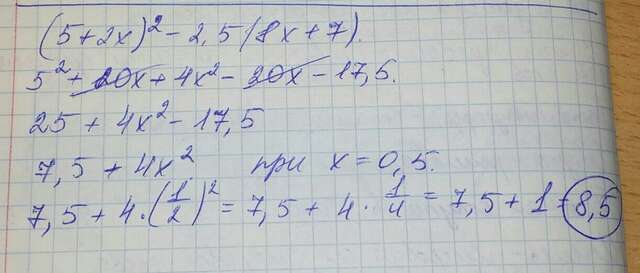 (5+2x)² - 2,5(8x+7).
5² + 20x + 4x² - 20x - 17,5.
25 + 4x² - 17,5
7,5 + 4x² при x = 0,5.
7,5 + 4·(1/2)² = 7,5 + 4·1/4 = 7,5 + 1 = 8,5